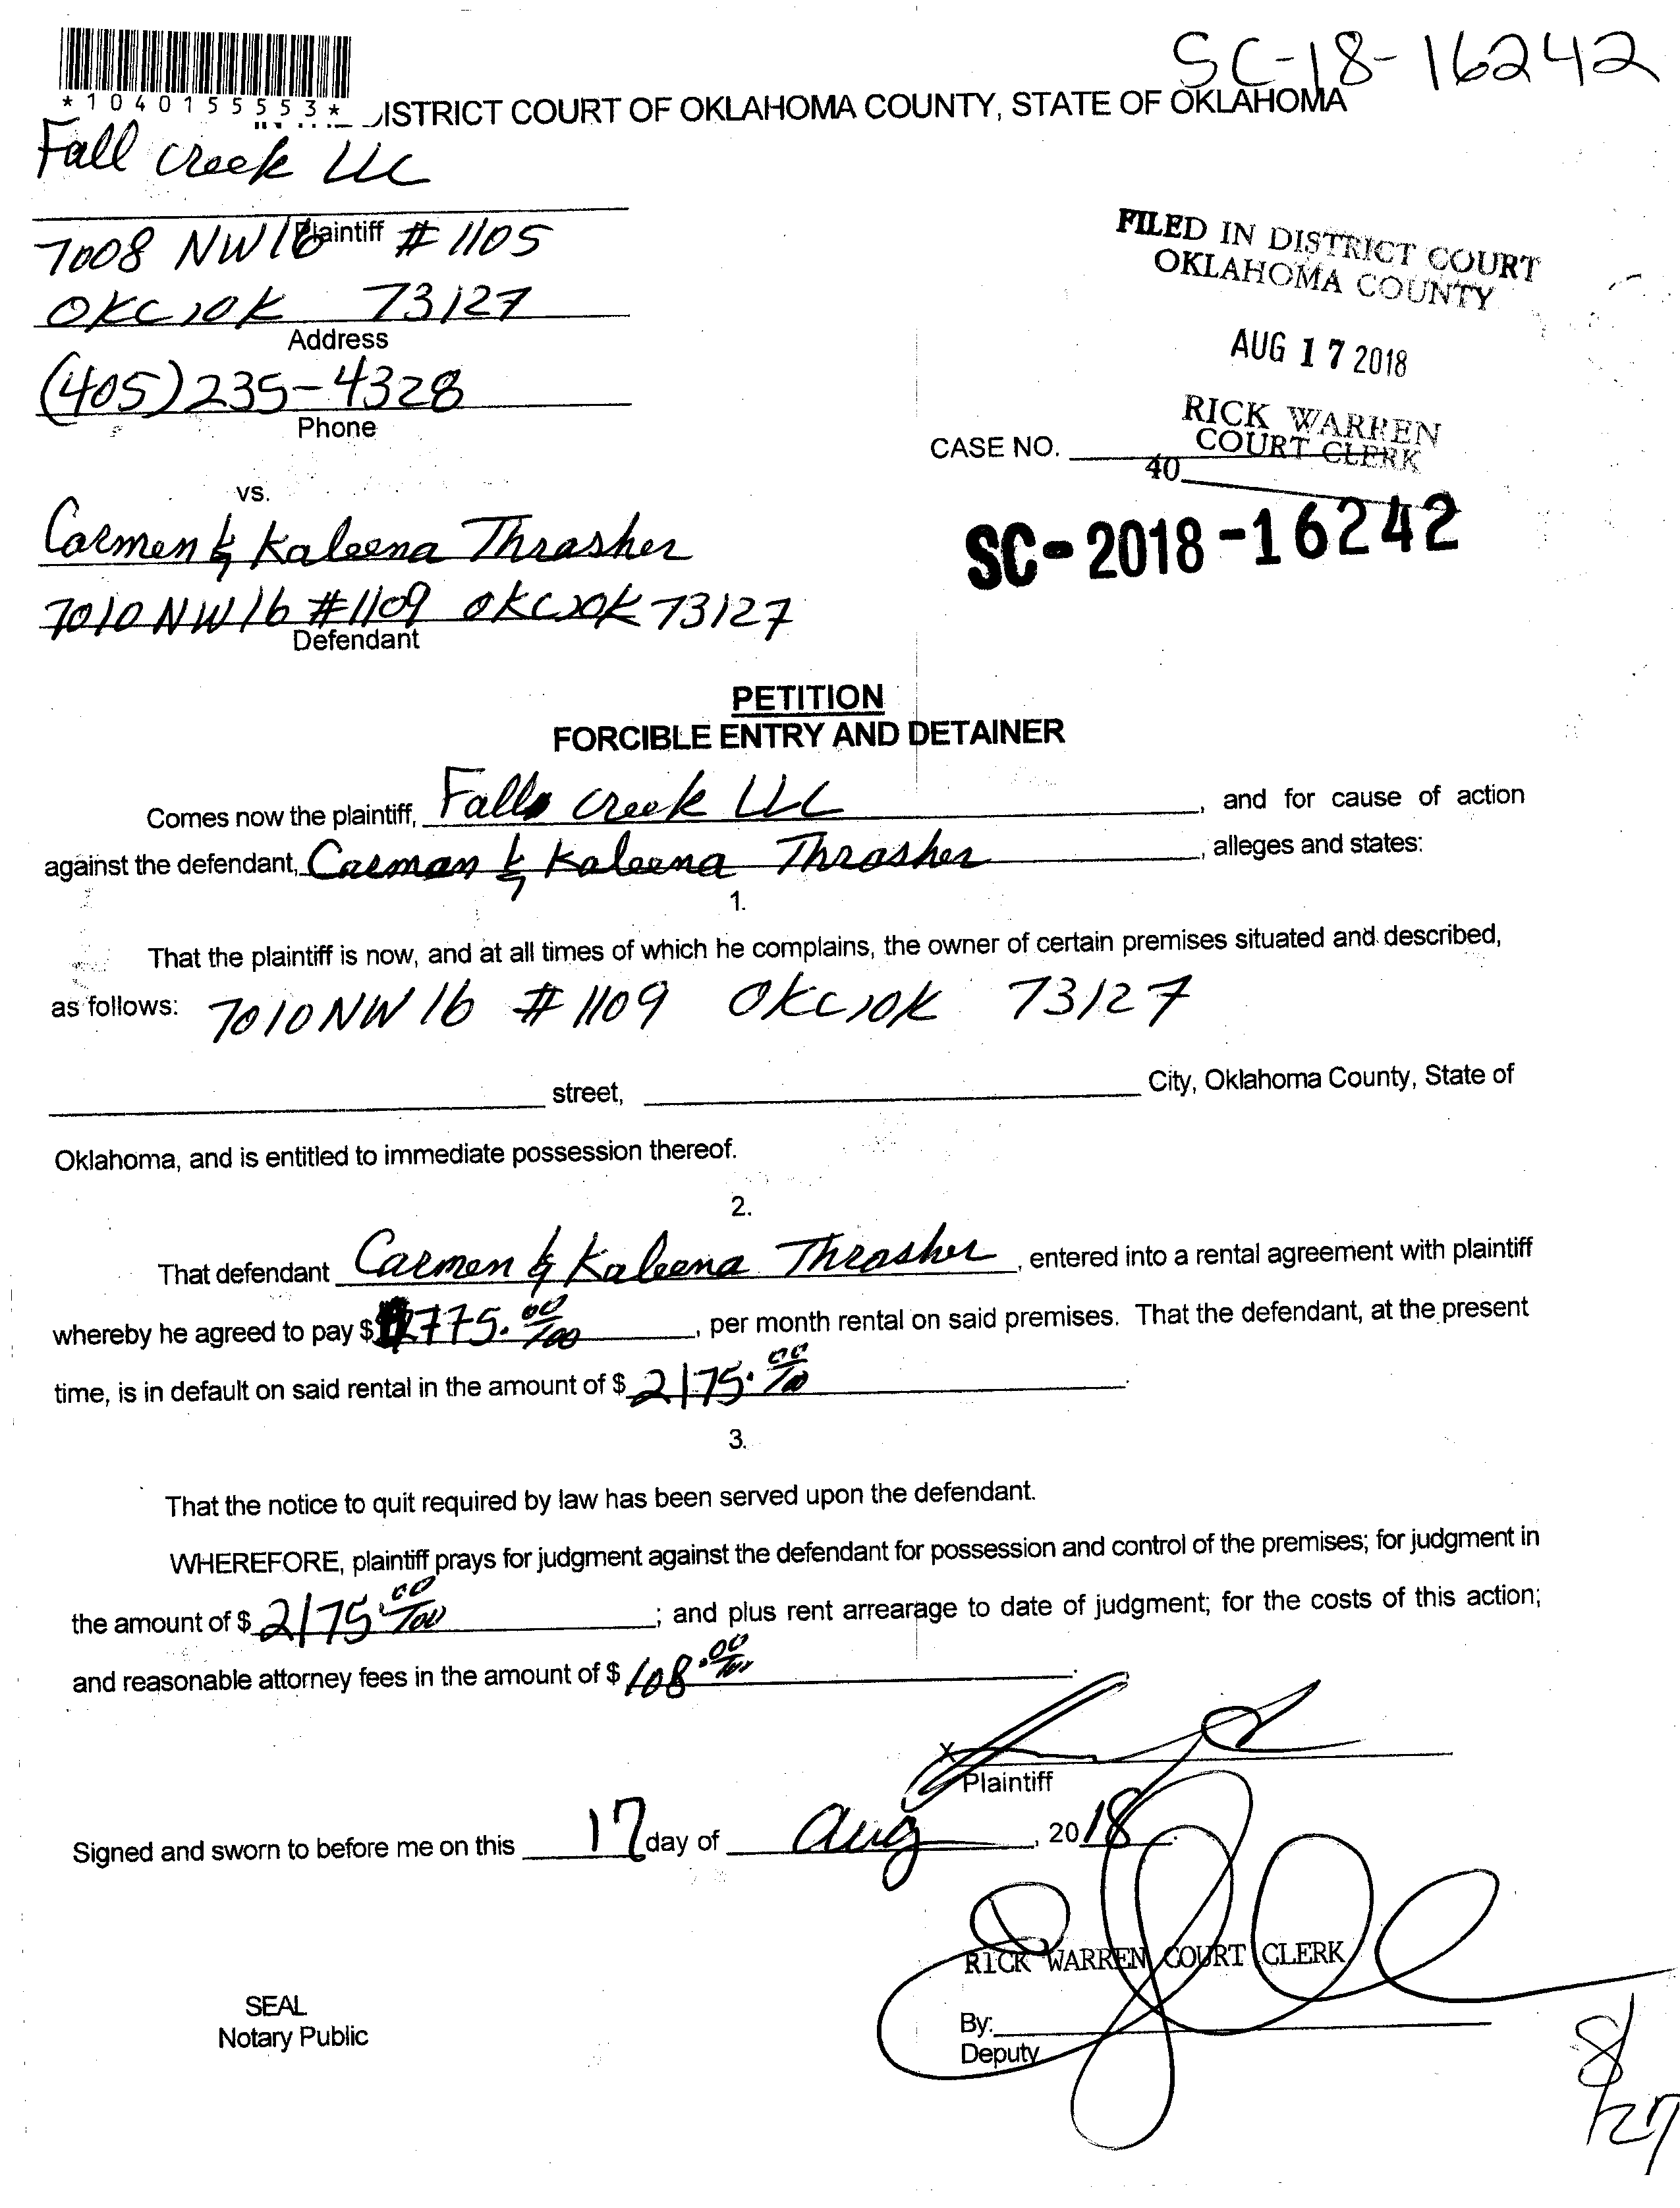 SC-18-16242
*1040155553*
ISTRICT COURT OF OKLAHOMA COUNTY, STATE OF OKLAHOMA
Fall creek LLC
Plaintiff
7008 NW 16 # 1105
OKC, OK 73127
Address
(405) 235-4328
Phone
FILED IN DISTRICT COURT
OKLAHOMA COUNTY
AUG 17 2018
RICK WARREN
COURT CLERK
CASE NO.
40
SC-2018-16242
vs.
Carmen & Kaleena Thrasher
7010 NW 16 #1109 OKC, OK 73127
Defendant
PETITION
FORCIBLE ENTRY AND DETAINER
Comes now the plaintiff, Falls creek LLC, and for cause of action
against the defendant, Carman & Kaleena Thrasher, alleges and states:
1.
That the plaintiff is now, and at all times of which he complains, the owner of certain premises situated and described,
as follows: 7010 NW 16 # 1109 OKC, OK 73127
street, City, Oklahoma County, State of
Oklahoma, and is entitled to immediate possession thereof.
2.
That defendant Carmen & Kaleena Thrasher, entered into a rental agreement with plaintiff
whereby he agreed to pay $ 775.00/100, per month rental on said premises. That the defendant, at the present
time, is in default on said rental in the amount of $ 2175.00/100.
3.
That the notice to quit required by law has been served upon the defendant.
WHEREFORE, plaintiff prays for judgment against the defendant for possession and control of the premises; for judgment in
the amount of $ 2175.00/100; and plus rent arrearage to date of judgment; for the costs of this action;
and reasonable attorney fees in the amount of $ 108.00/100.
X
Plaintiff
Signed and sworn to before me on this 17 day of Aug, 2018.
RICK WARREN COURT CLERK
SEAL
Notary Public
By:
Deputy
8/27